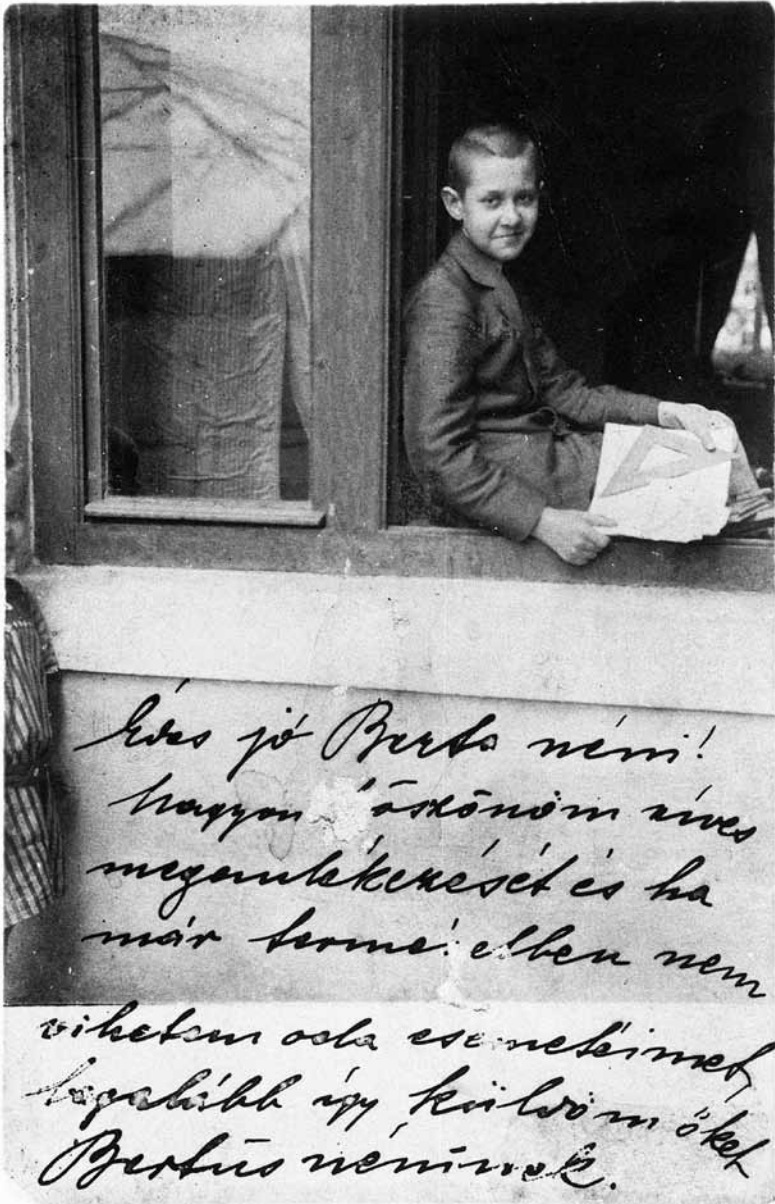 Édes jó Berta néni!
Nagyon öszönöm szíves
megemlékezését és ha
már terme etben nem
vihetem oda csemetéimet,
legalább így küldöm őket
Bertus néninek.